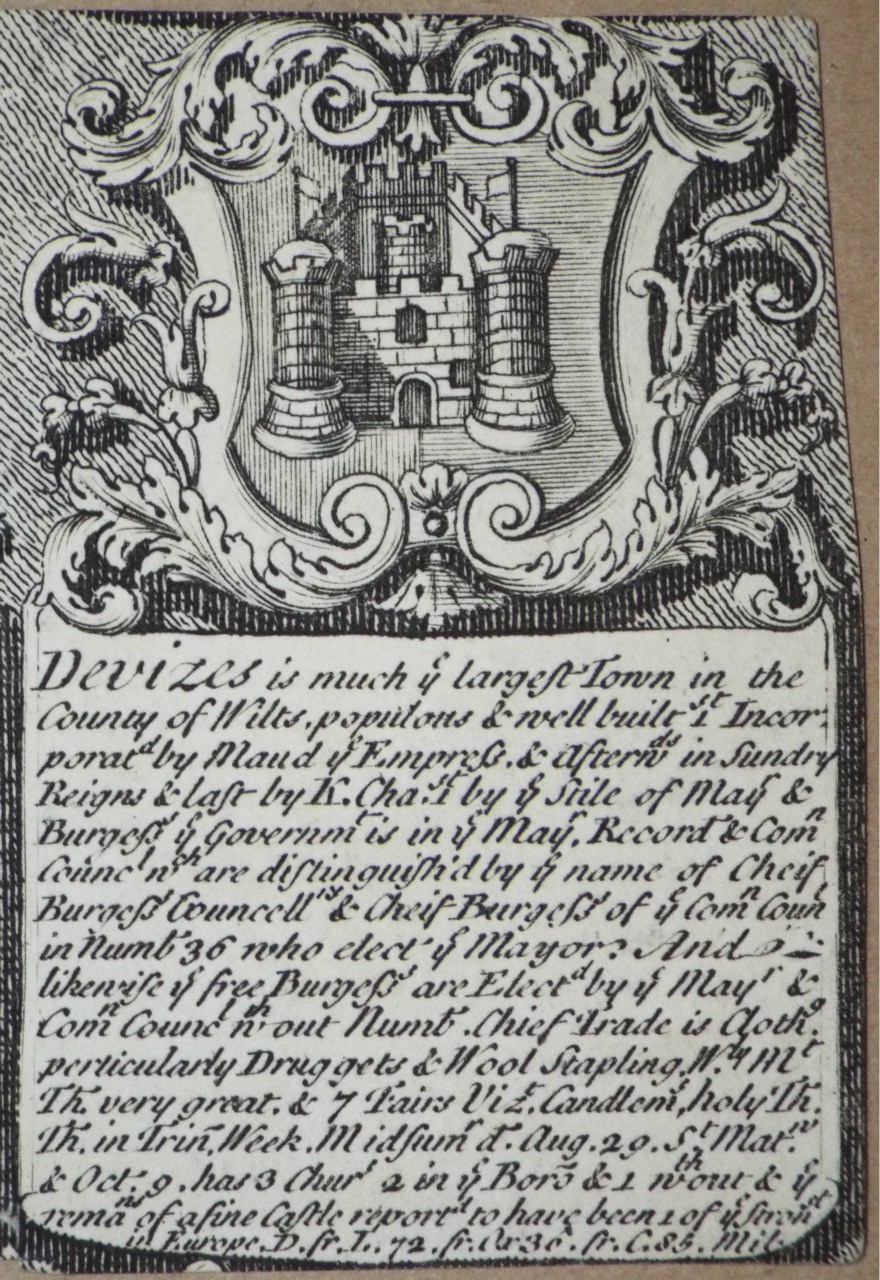 Devizes is much yͤ largeſt Town in the
County of Wilts, populous & well built 1ˢᵗ Incor-
poratᵈ by Maud yͤ Empreſs. & Afterwᵈˢ in Sundry
Reigns & laſt by K. Cha. 1ˢᵗ by yͤ Stile of Mayʳ &
Burgeſsˢ yͤ Governmᵗ is in yͤ Mayʳ, Recordʳ & Comⁿ
Councˡ wᶜʰ are diſtinguiſh'd by yͤ name of Cheif
Burgeſsˢ Councellʳˢ & Cheif Burgeſsˢ of yͤ Comⁿ Counˡ
in Numbʳ 36 who elect yͤ Mayor: And
likewiſe yͤ free Burgeſsˢ are Electᵈ by yͤ Mayʳ &
Comⁿ Councˡ wᵗʰout Numbʳ. Chief Trade is Cloth⁹.
perticularly Druggets & Wool Stapling, W.ʸ Mᵗ
Th. very great. & 7 Fairs Vizᵗ. Candlemˢ, holy Th.
Th. in Trinʸ, Week. Midſumʳ d. Aug. 29. Sᵗ Matʷ.
& Octʳ. 9. has 3 Churˢ 2 in yͤ Boro & 1 wᵗʰout & yͤ
remaⁿˢ of a fine Caſtle reportᵈ to have been 1 of yͤ Stronˢᵗ
in Europe. D. fr. L. 72. fr. Ox 36. fr. C. 85. Mil.